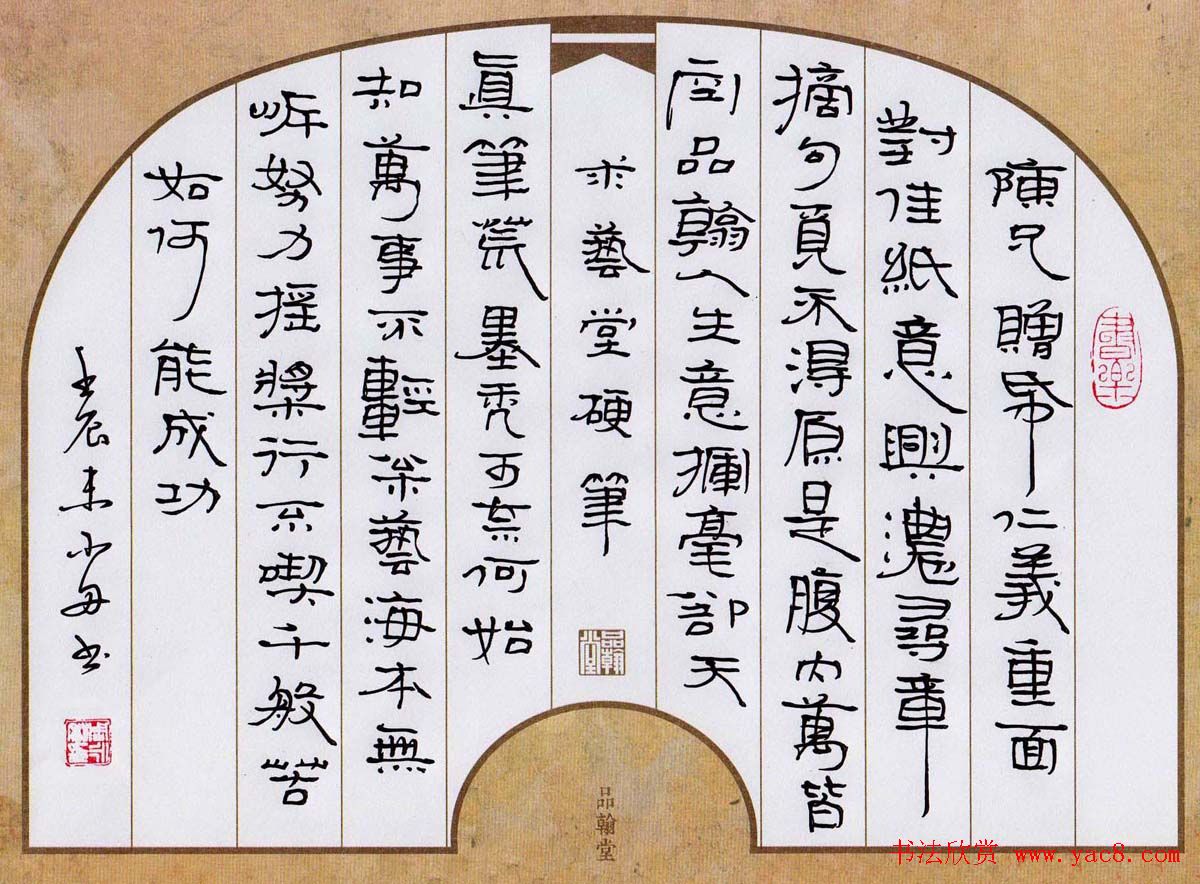 陳兄贈帋仁義重面
對佳紙意興濃尋章
摘句覓不得原是腹内萬皆
空品翰人生意揮毫卻天
求藝堂硬筆
品翰堂
眞筆荒墨秃可奈何始
知萬事不輕柔藝海本無
岸努力摇槳行不喫千般苦
如何能成功
壬辰末小书
品翰堂
书法欣赏 www.yac8.com